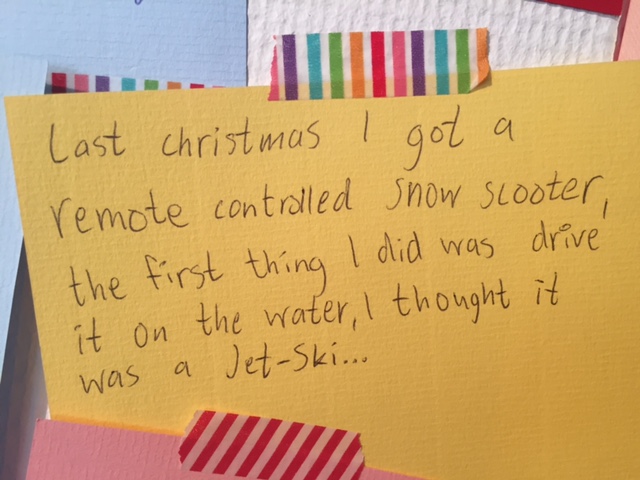 Last christmas I got a
remote controlled snow scooter,
the first thing I did was drive
it on the water, I thought it
was a Jet-Ski...